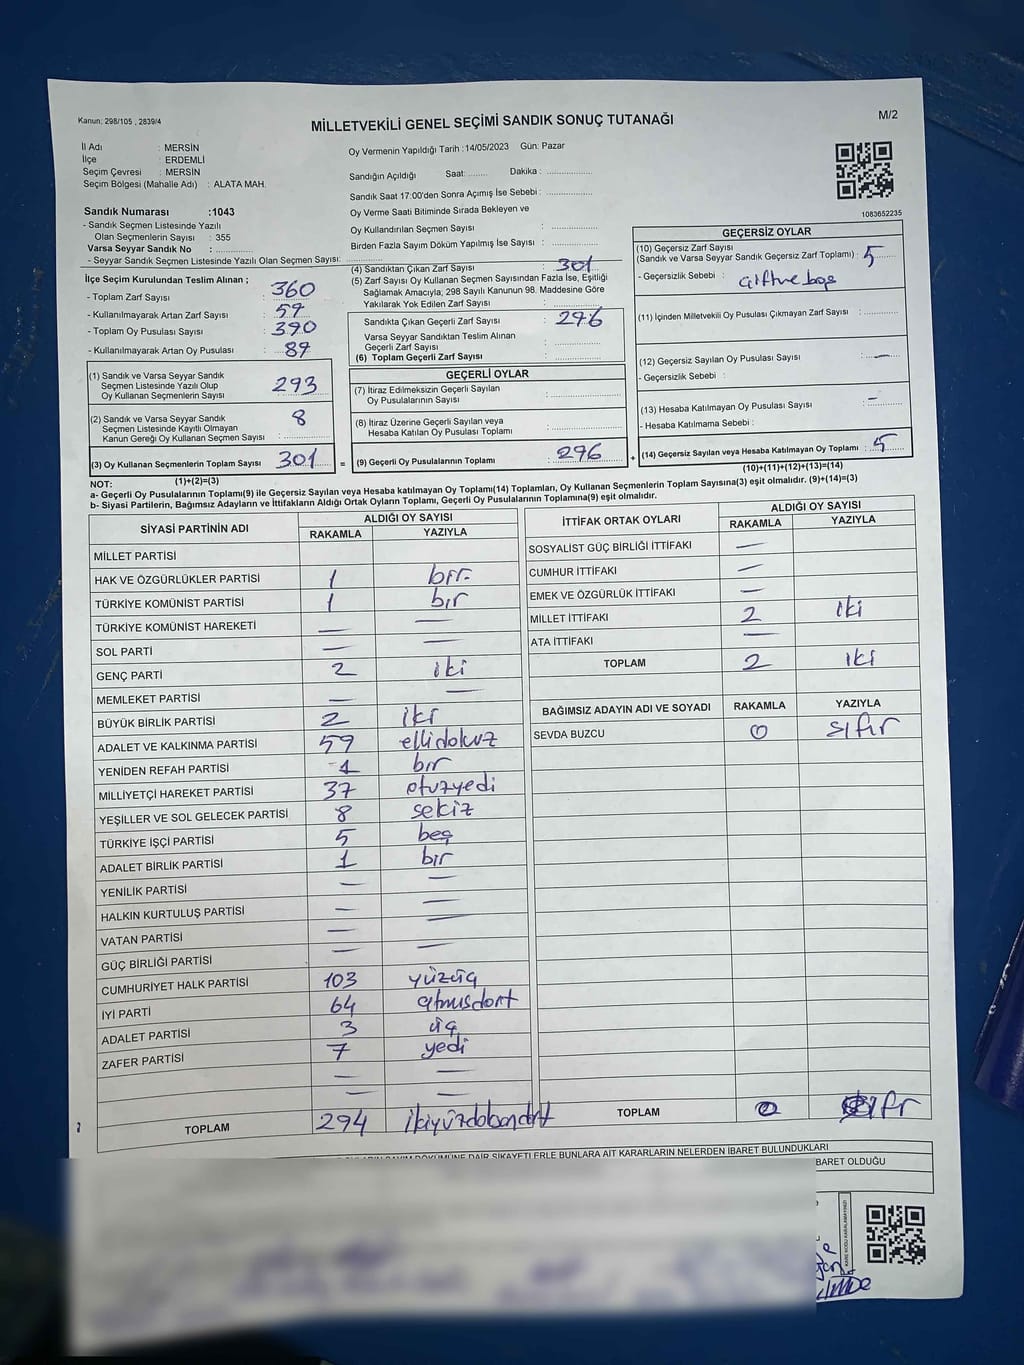 Kanun: 298/105 , 2839/4
MİLLETVEKİLİ GENEL SEÇİMİ SANDIK SONUÇ TUTANAĞI
M/2
İl Adı : MERSİN
İlçe : ERDEMLİ
Seçim Çevresi : MERSİN
Seçim Bölgesi (Mahalle Adı) : ALATA MAH.
Sandık Numarası : 1043
- Sandık Seçmen Listesinde Yazılı
Olan Seçmenlerin Sayısı : 355
Varsa Seyyar Sandık No :
- Seyyar Sandık Seçmen Listesinde Yazılı Olan Seçmen Sayısı:
Oy Vermenin Yapıldığı Tarih : 14/05/2023 Gün: Pazar
Sandığın Açıldığı Saat: Dakika :
Sandık Saat 17:00'den Sonra Açımış İse Sebebi :
Oy Verme Saati Bitiminde Sırada Bekleyen ve
Oy Kullandırılan Seçmen Sayısı :
Birden Fazla Sayım Döküm Yapılmış İse Sayısı :
1083652235
İlçe Seçim Kurulundan Teslim Alınan ;
- Toplam Zarf Sayısı : 360
- Kullanılmayarak Artan Zarf Sayısı : 59
- Toplam Oy Pusulası Sayısı : 390
- Kullanılmayarak Artan Oy Pusulası : 89
(1) Sandık ve Varsa Seyyar Sandık
Seçmen Listesinde Yazılı Olup
Oy Kullanan Seçmenlerin Sayısı : 293
(2) Sandık ve Varsa Seyyar Sandık
Seçmen Listesinde Kayıtlı Olmayan
Kanun Gereği Oy Kullanan Seçmen Sayısı : 8
(3) Oy Kullanan Seçmenlerin Toplam Sayısı 301 =
(4) Sandıktan Çıkan Zarf Sayısı : 301
(5) Zarf Sayısı Oy Kullanan Seçmen Sayısından Fazla İse, Eşitliği
Sağlamak Amacıyla, 298 Sayılı Kanunun 98. Maddesine Göre
Yakılarak Yok Edilen Zarf Sayısı :
Sandıkta Çıkan Geçerli Zarf Sayısı : 296
Varsa Seyyar Sandıktan Teslim Alınan
Geçerli Zarf Sayısı :
(6) Toplam Geçerli Zarf Sayısı :
GEÇERLİ OYLAR
(7) İtiraz Edilmeksizin Geçerli Sayılan
Oy Pusulalarının Sayısı :
(8) İtiraz Üzerine Geçerli Sayılan veya
Hesaba Katılan Oy Pusulası Toplamı :
(9) Geçerli Oy Pusulalarının Toplamı : 296 +
GEÇERSİZ OYLAR
(10) Geçersiz Zarf Sayısı
(Sandık ve Varsa Seyyar Sandık Geçersiz Zarf Toplamı) : 5
- Geçersizlik Sebebi : çift ve boş
(11) İçinden Milletvekili Oy Pusulası Çıkmayan Zarf Sayısı :
(12) Geçersiz Sayılan Oy Pusulası Sayısı : —
- Geçersizlik Sebebi :
(13) Hesaba Katılmayan Oy Pusulası Sayısı : -
- Hesaba Katılmama Sebebi :
(14) Geçersiz Sayılan veya Hesaba Katılmayan Oy Toplamı : 5
(1)+(2)=(3)
(10)+(11)+(12)+(13)=(14)
NOT:
a- Geçerli Oy Pusulaların Toplamı(9) ile Geçersiz Sayılan veya Hesaba katılmayan Oy Toplamı(14) Toplamları, Oy Kullanan Seçmenlerin Toplam Sayısına(3) eşit olmalıdır. (9)+(14)=(3)
b- Siyasi Partilerin, Bağımsız Adayların ve İttifakların Aldığı Ortak Oyların Toplamı, Geçerli Oy Pusulalarının Toplamına(9) eşit olmalıdır.
SİYASİ PARTİNİN ADI ALDIĞI OY SAYISI
RAKAMLA YAZIYLA
MİLLET PARTİSİ
HAK VE ÖZGÜRLÜKLER PARTİSİ 1 bir
TÜRKİYE KOMÜNİST PARTİSİ 1 bir
TÜRKİYE KOMÜNİST HAREKETİ — —
SOL PARTİ — —
GENÇ PARTİ 2 iki
MEMLEKET PARTİSİ — —
BÜYÜK BİRLİK PARTİSİ 2 iki
ADALET VE KALKINMA PARTİSİ 59 ellidokuz
YENİDEN REFAH PARTİSİ 1 bir
MİLLİYETÇİ HAREKET PARTİSİ 37 otuzyedi
YEŞİLLER VE SOL GELECEK PARTİSİ 8 sekiz
TÜRKİYE İŞÇİ PARTİSİ 5 beş
ADALET BİRLİK PARTİSİ 1 bir
YENİLİK PARTİSİ — —
HALKIN KURTULUŞ PARTİSİ — —
VATAN PARTİSİ — —
GÜÇ BİRLİĞİ PARTİSİ — —
CUMHURİYET HALK PARTİSİ 103 yüzüç
İYİ PARTİ 64 atmışdört
ADALET PARTİSİ 3 üç
ZAFER PARTİSİ 7 yedi
— —
— —
TOPLAM 294 ikiyüzdoksandört
İTTİFAK ORTAK OYLARI ALDIĞI OY SAYISI
RAKAMLA YAZIYLA
SOSYALİST GÜÇ BİRLİĞİ İTTİFAKI —
CUMHUR İTTİFAKI —
EMEK VE ÖZGÜRLÜK İTTİFAKI —
MİLLET İTTİFAKI 2 iki
ATA İTTİFAKI —
TOPLAM 2 iki
BAĞIMSIZ ADAYIN ADI VE SOYADI RAKAMLA YAZIYLA
SEVDA BUZCU 0 sıfır
TOPLAM 0 sıfır
DÖKÜMÜNE DAİR ŞİKAYETLERLE BUNLARA AİT KARARLARIN NELERDEN İBARET BULUNDUKLARI
BARET OLDUĞU